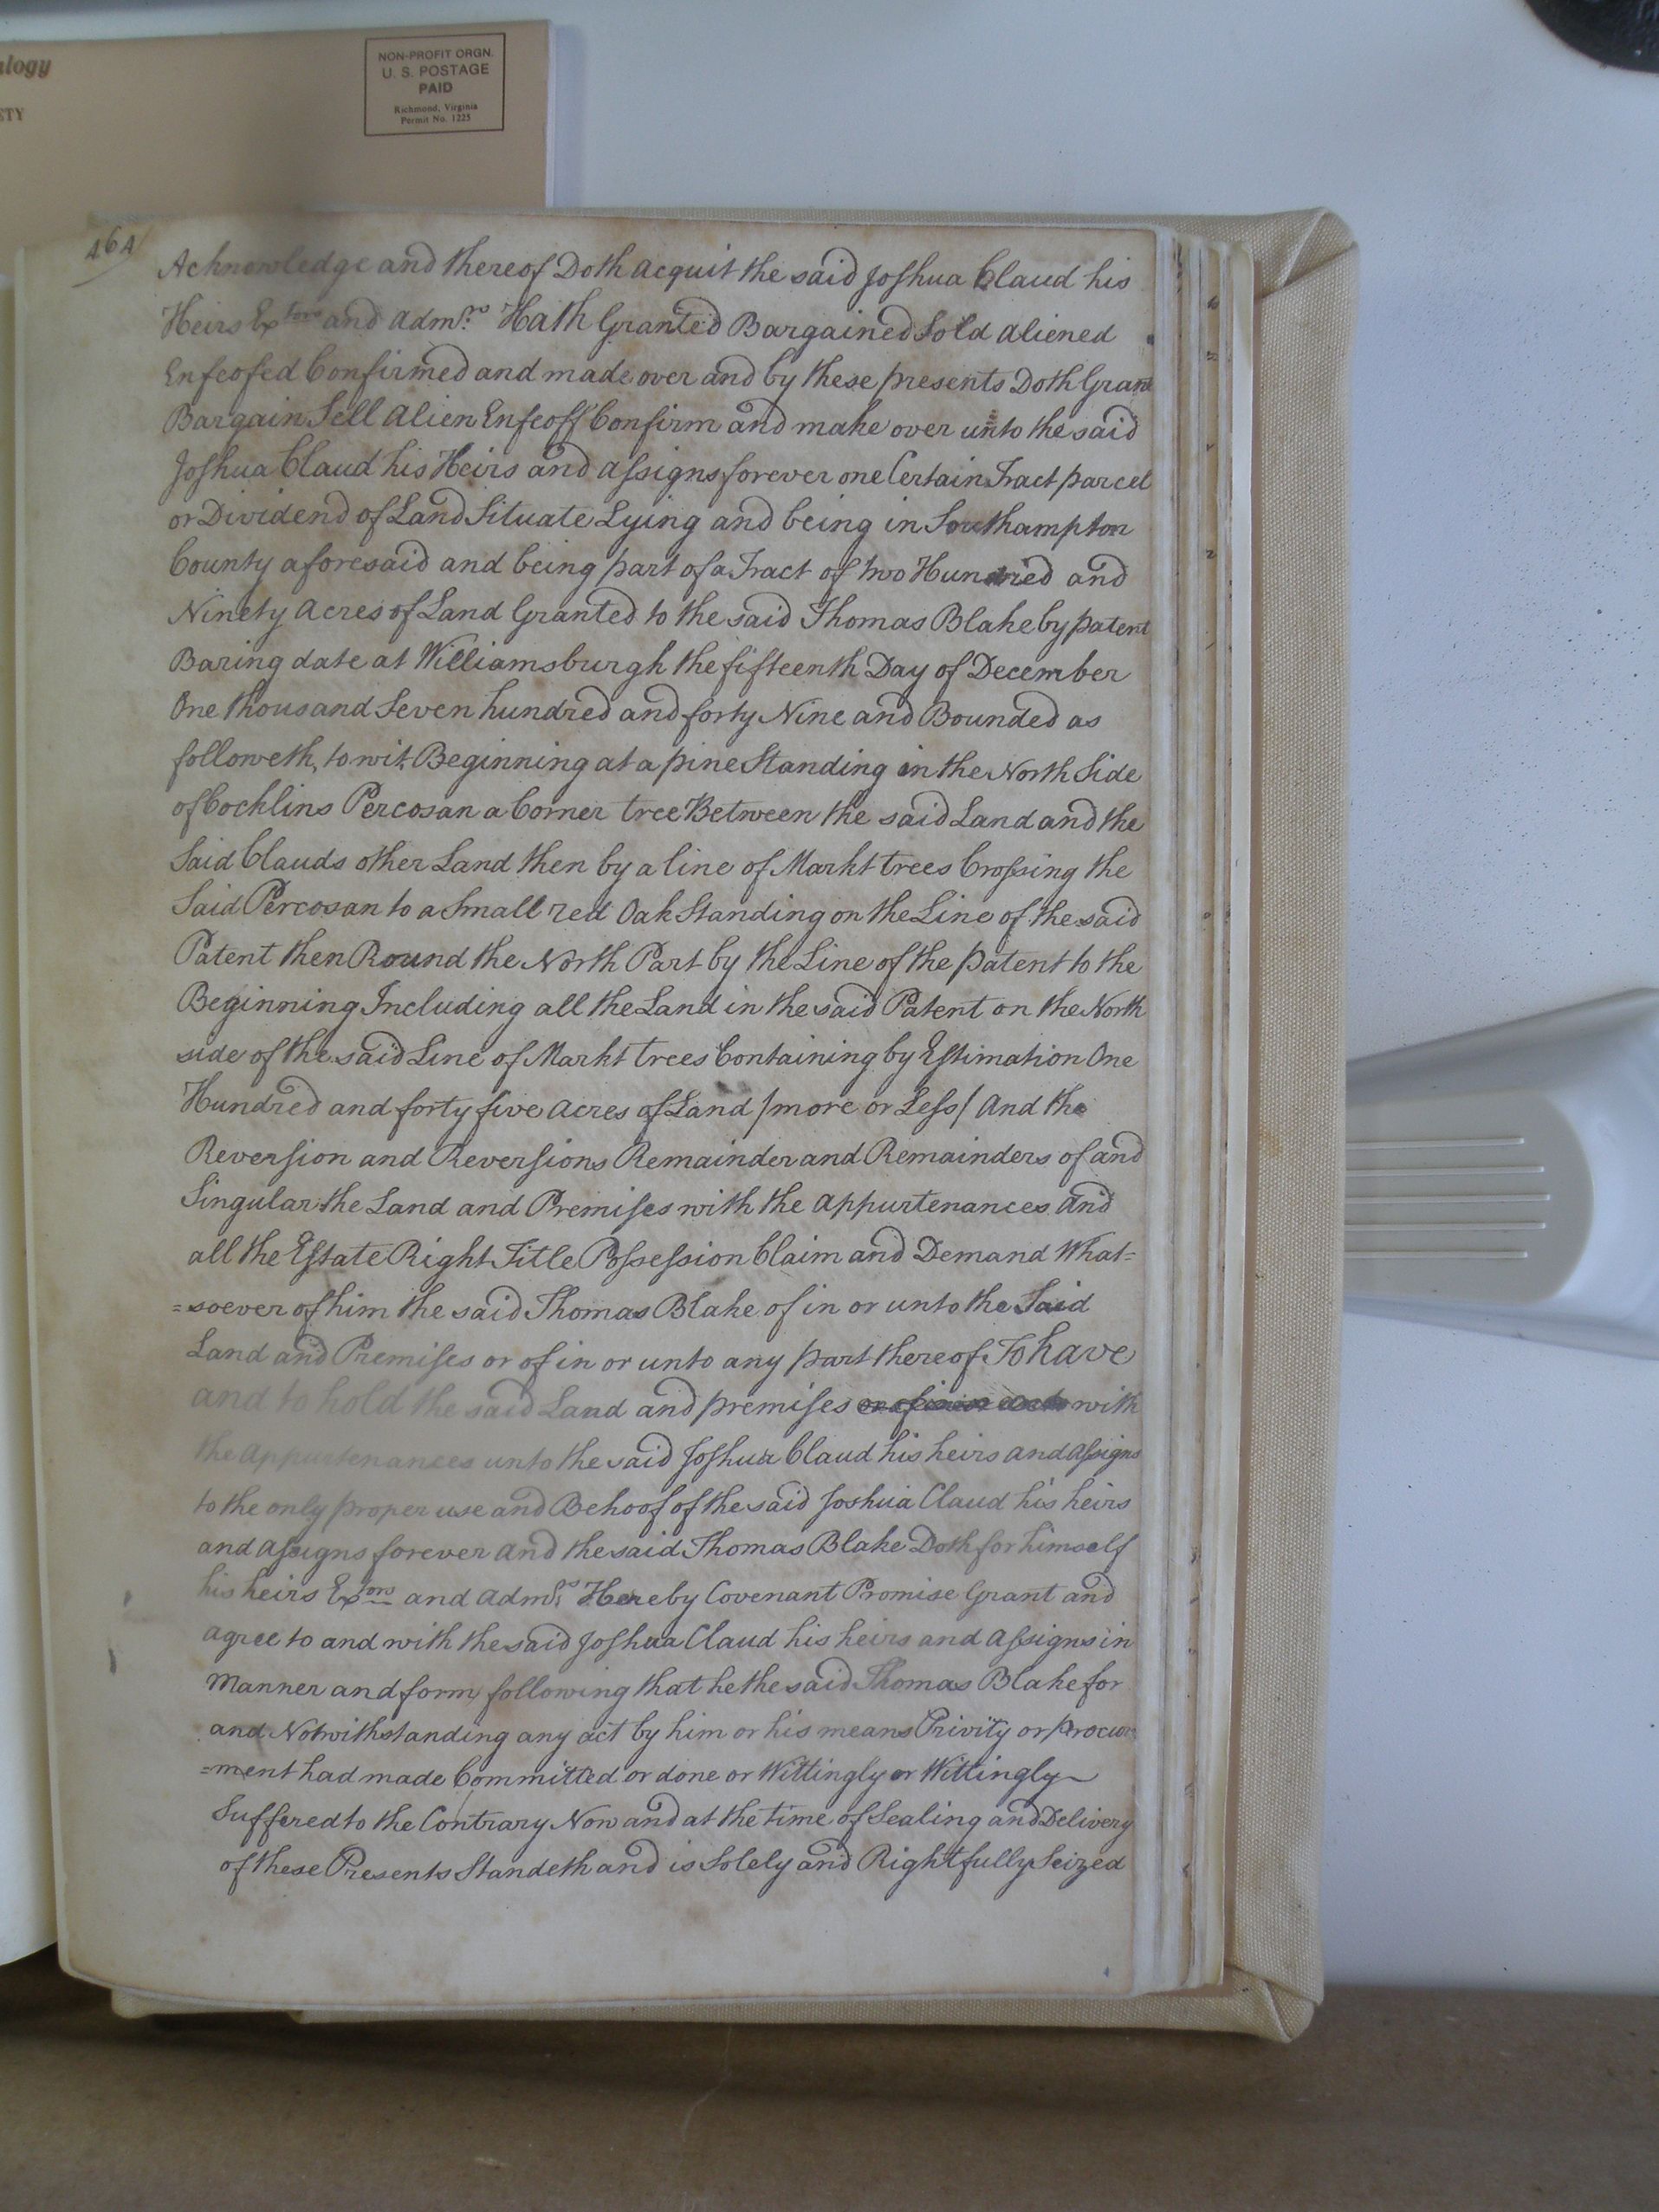 alogy
STY
NON-PROFIT ORGN.
U. S. POSTAGE
PAID
Richmond, Virginia
Permit No. 1225
464
Acknowledge and thereof Doth acquit the said Joshua Claud his
Heirs Extors and Admrs Hath Granted Bargained Sold aliened
Enfeofed Confirmed and made over and by these presents Doth Grant
Bargain Sell alien Enfeoff Confirm and make over unto the said
Joshua Claud his Heirs and assigns forever one Certain Tract parcel
or Dividend of Land Situate Lying and being in Southampton
County aforesaid and being part of a Tract of two Hundred and
Ninety acres of Land Granted to the said Thomas Blake by patent
Baring date at Williamsburgh the fifteenth Day of December
One thousand Seven hundred and forty Nine and Bounded as
followeth, to wit Beginning at a pine Standing in the North Side
of Cocklins Percosan a Corner tree Between the said Land and the
Said Clauds other Land then by a line of Markt trees Crossing the
Said Percosan to a Small red Oak Standing on the Line of the said
Patent then Round the North Part by the Line of the patent to the
Beginning Including all the Land in the said Patent on the North
side of the said Line of Markt trees Containing by Estimation One
Hundred and forty five acres of Land /more or Less/ And the
Reversion and Reversions Remainder and Remainders of and
Singular the Land and Premises with the appurtenances and
all the Estate Right Title Possession Claim and Demand What=
=soever of him the said Thomas Blake of in or unto the Said
Land and Premises or of in or unto any part thereof To have
and to hold the said Land and premises with
the appurtenances unto the said Joshua Claud his heirs and assigns
to the only proper use and Behoof of the said Joshua Claud his heirs
and assigns forever and the said Thomas Blake Doth for himself
his heirs Extors and Admrs Hereby Covenant Promise Grant and
agree to and with the said Joshua Claud his heirs and assigns in
Manner and form following that he the said Thomas Blake for
and Notwithstanding any act by him or his means Privity or procure
=ment had made Committed or done or Wittingly or Wittingly
Suffered to the Contrary Now and at the time of Sealing and Delivery
of these Presents Standeth and is Solely and Rightfully Seized